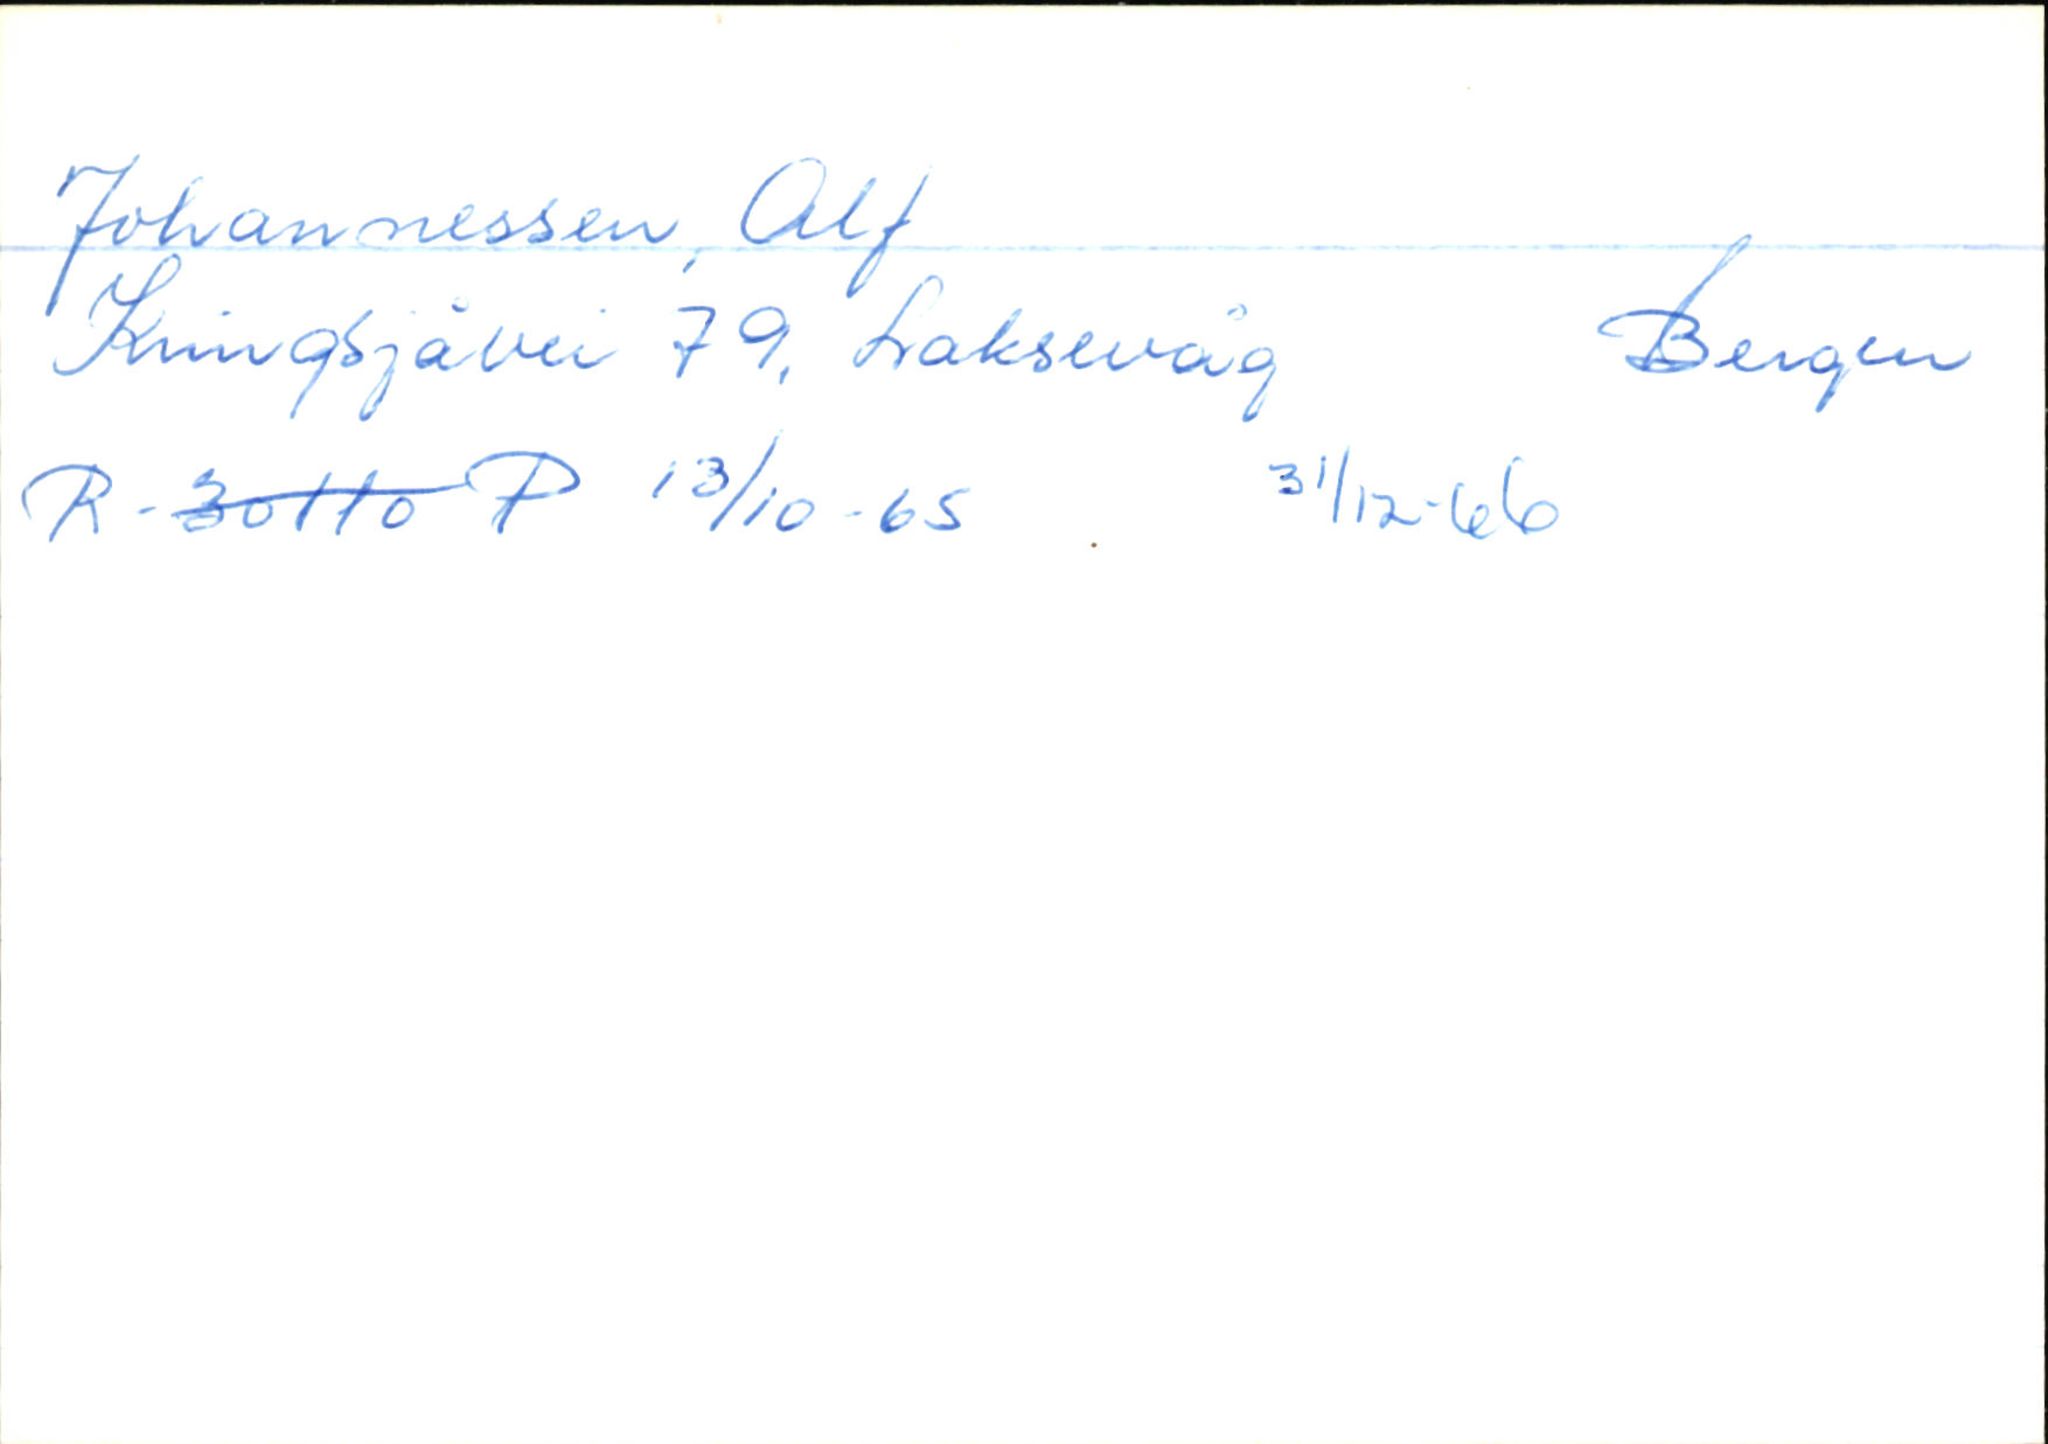 Johannessen, Alf
Kringsjåvei 79, Laksevåg Bergen
R-30110 P 13/10-65 31/12-66